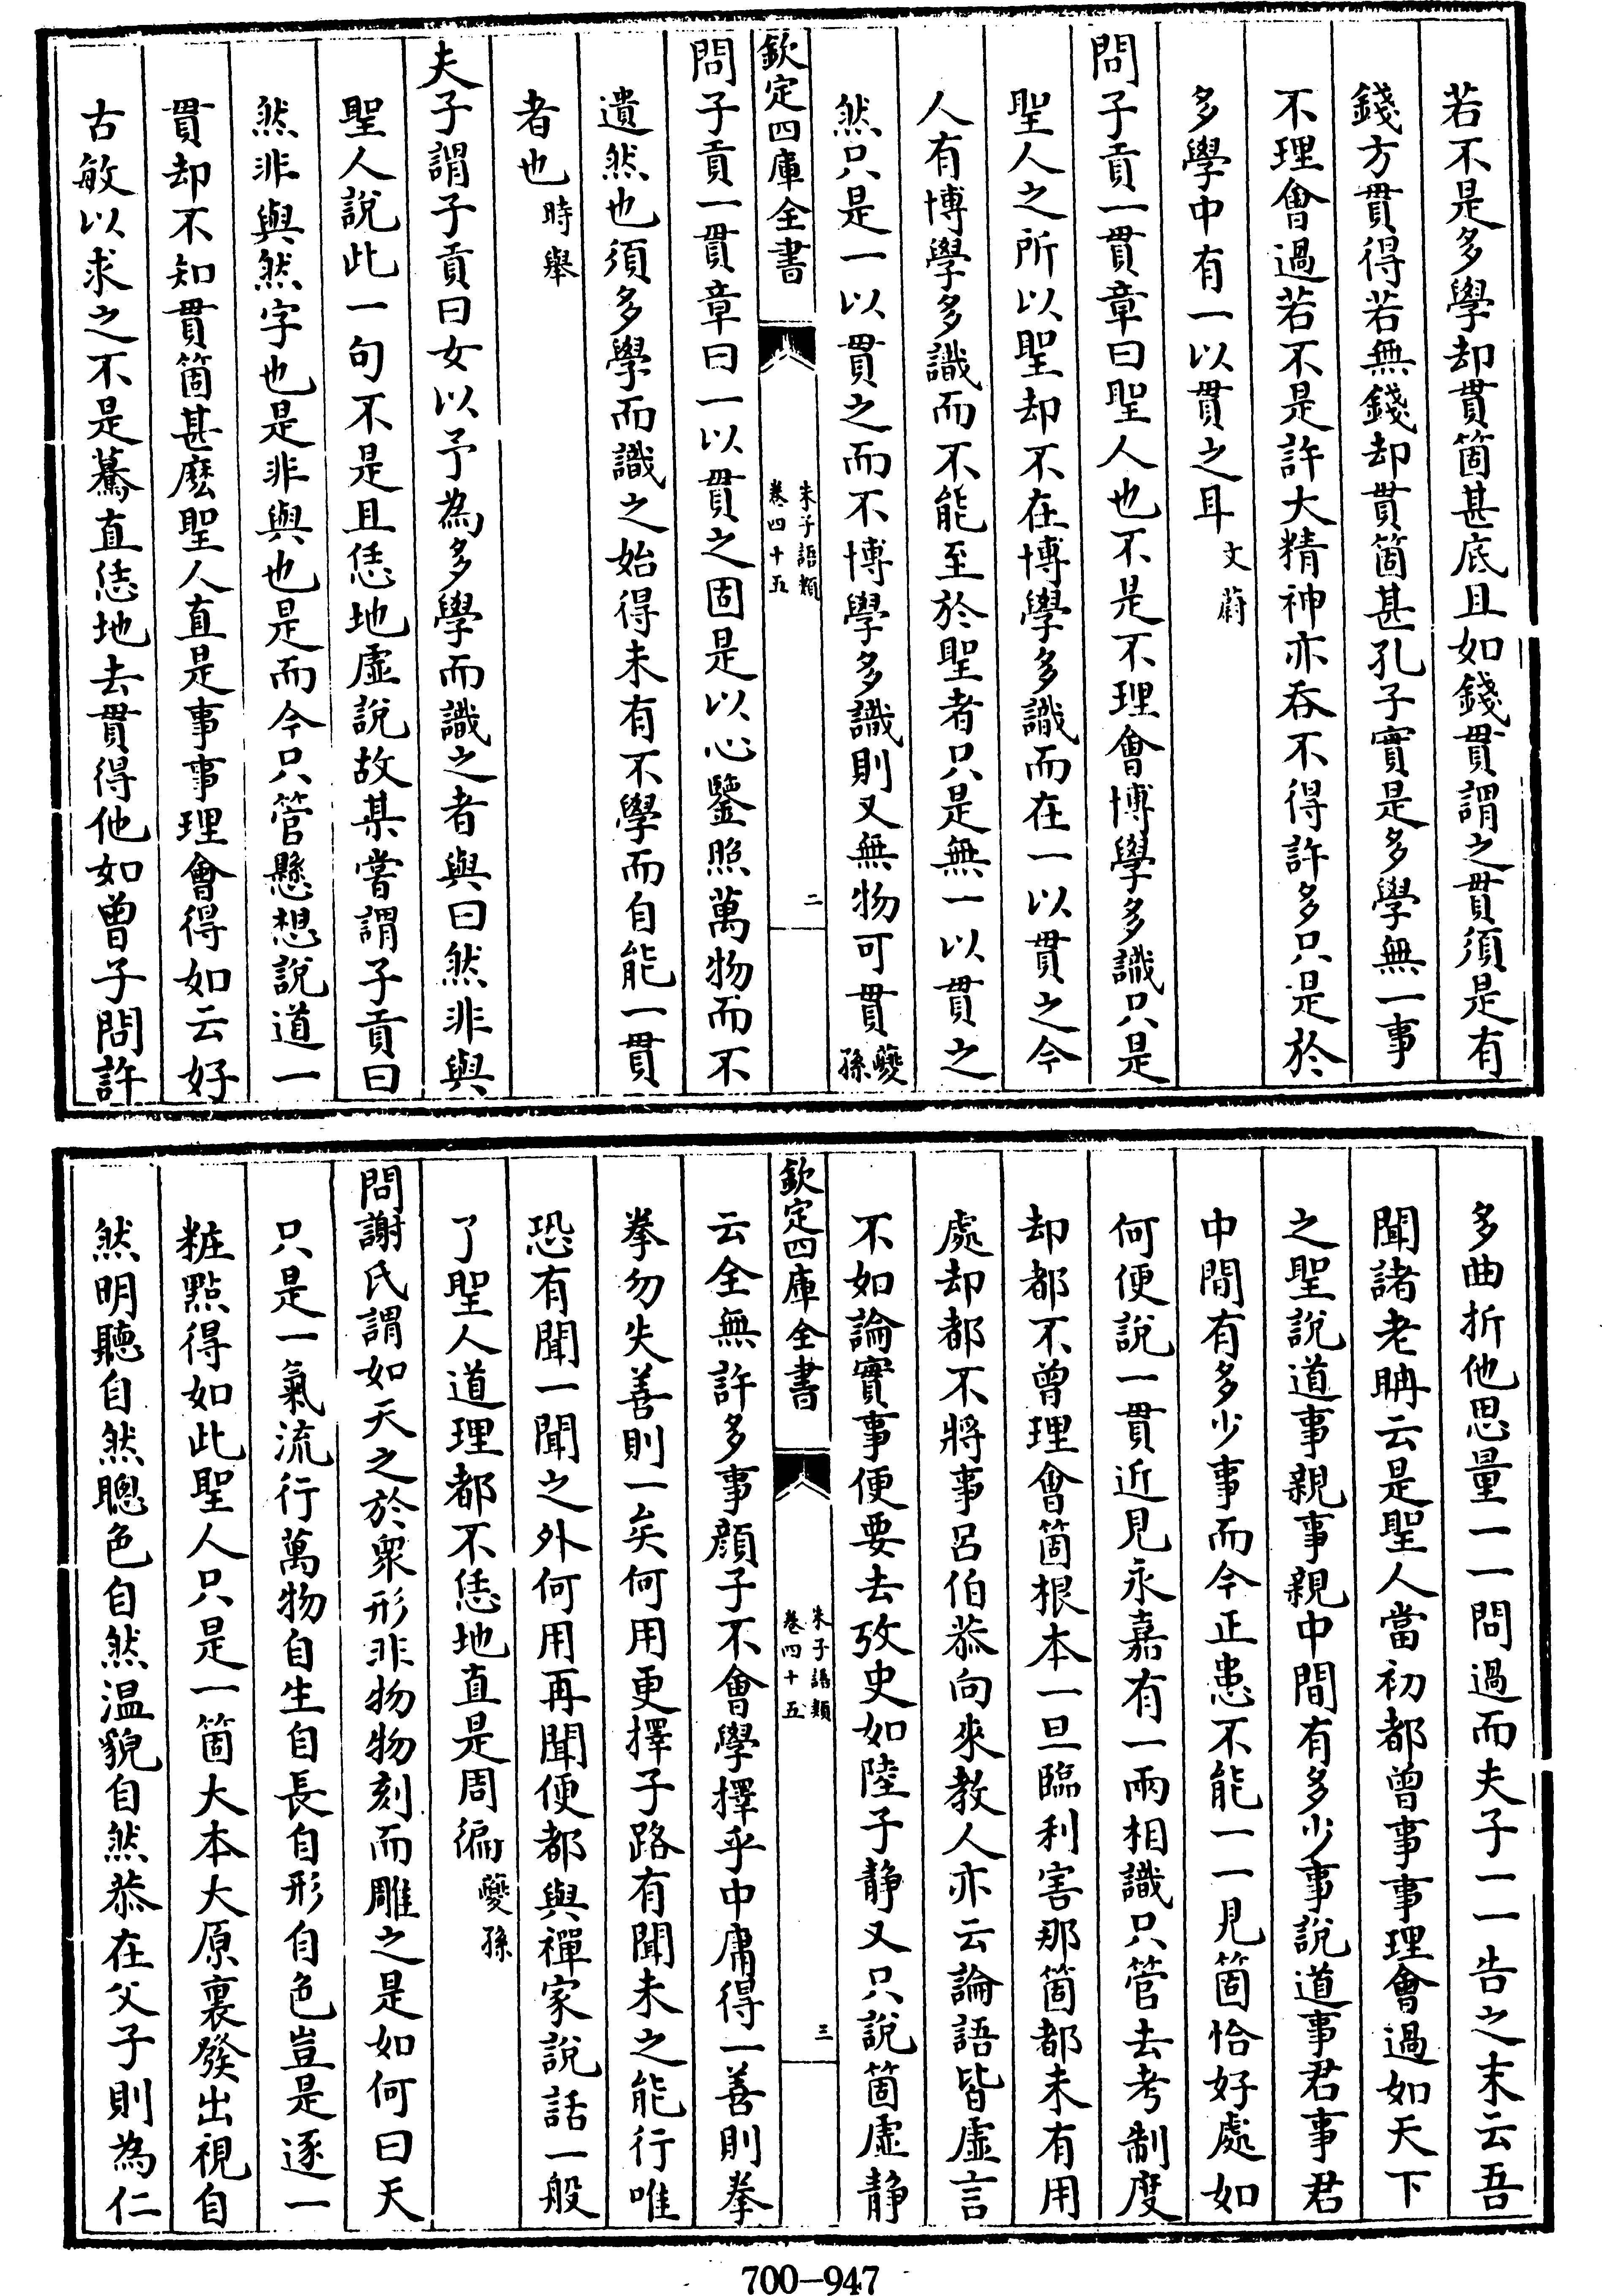 若不是多學却貫箇甚底且如錢貫謂之貫須是有
錢方貫得若無錢却貫箇甚孔子實是多學無一事
不理會過若不是許大精神亦吞不得許多只是於
多學中有一以貫之耳文蔚
問子貢一貫章曰聖人也不是不理會博學多識只是
聖人之所以聖却不在博學多識而在一以貫之今
人有博學多識而不能至於聖者只是無一以貫之
然只是一以貫之而不博學多識則又無物可貫夔孫
欽定四庫全書
朱子語類
卷四十五
二
問子貢一貫章曰一以貫之固是以心鑒照萬物而不
遺然也須多學而識之始得未有不學而自能一貫
者也時舉
夫子謂子貢曰女以予為多學而識之者與曰然非與
聖人說此一句不是且恁地虛說故某嘗謂子貢曰
然非與然字也是非與也是而今只管懸想說道一
貫却不知貫箇甚麼聖人直是事事理會得如云好
古敏以求之不是驀直恁地去貫得他如曾子問許
多曲折他思量一一問過而夫子一一告之末云吾
聞諸老聃云是聖人當初都曾事事理會過如天下
之聖說道事親事親中間有多少事說道事君事君
中間有多少事而今正患不能一一見箇恰好處如
何便說一貫近見永嘉有一兩相識只管去考制度
却都不曾理會箇根本一旦臨利害那箇都未有用
處却都不將事呂伯恭向來教人亦云論語皆虛言
不如論實事便要去攷史如陸子靜又只說箇虛靜
欽定四庫全書
朱子語類
卷四十五
三
云全無許多事顔子不會學擇乎中庸得一善則拳
拳勿失善則一矣何用更擇子路有聞未之能行唯
恐有聞一聞之外何用再聞便都與禪家說話一般
了聖人道理都不恁地直是周徧夔孫
問謝氏謂如天之於衆形非物物刻而雕之是如何曰天
只是一氣流行萬物自生自長自形自色豈是逐一
粧點得如此聖人只是一箇大本大原裏發出視自
然明聽自然聰色自然温貌自然恭在父子則為仁
700-947